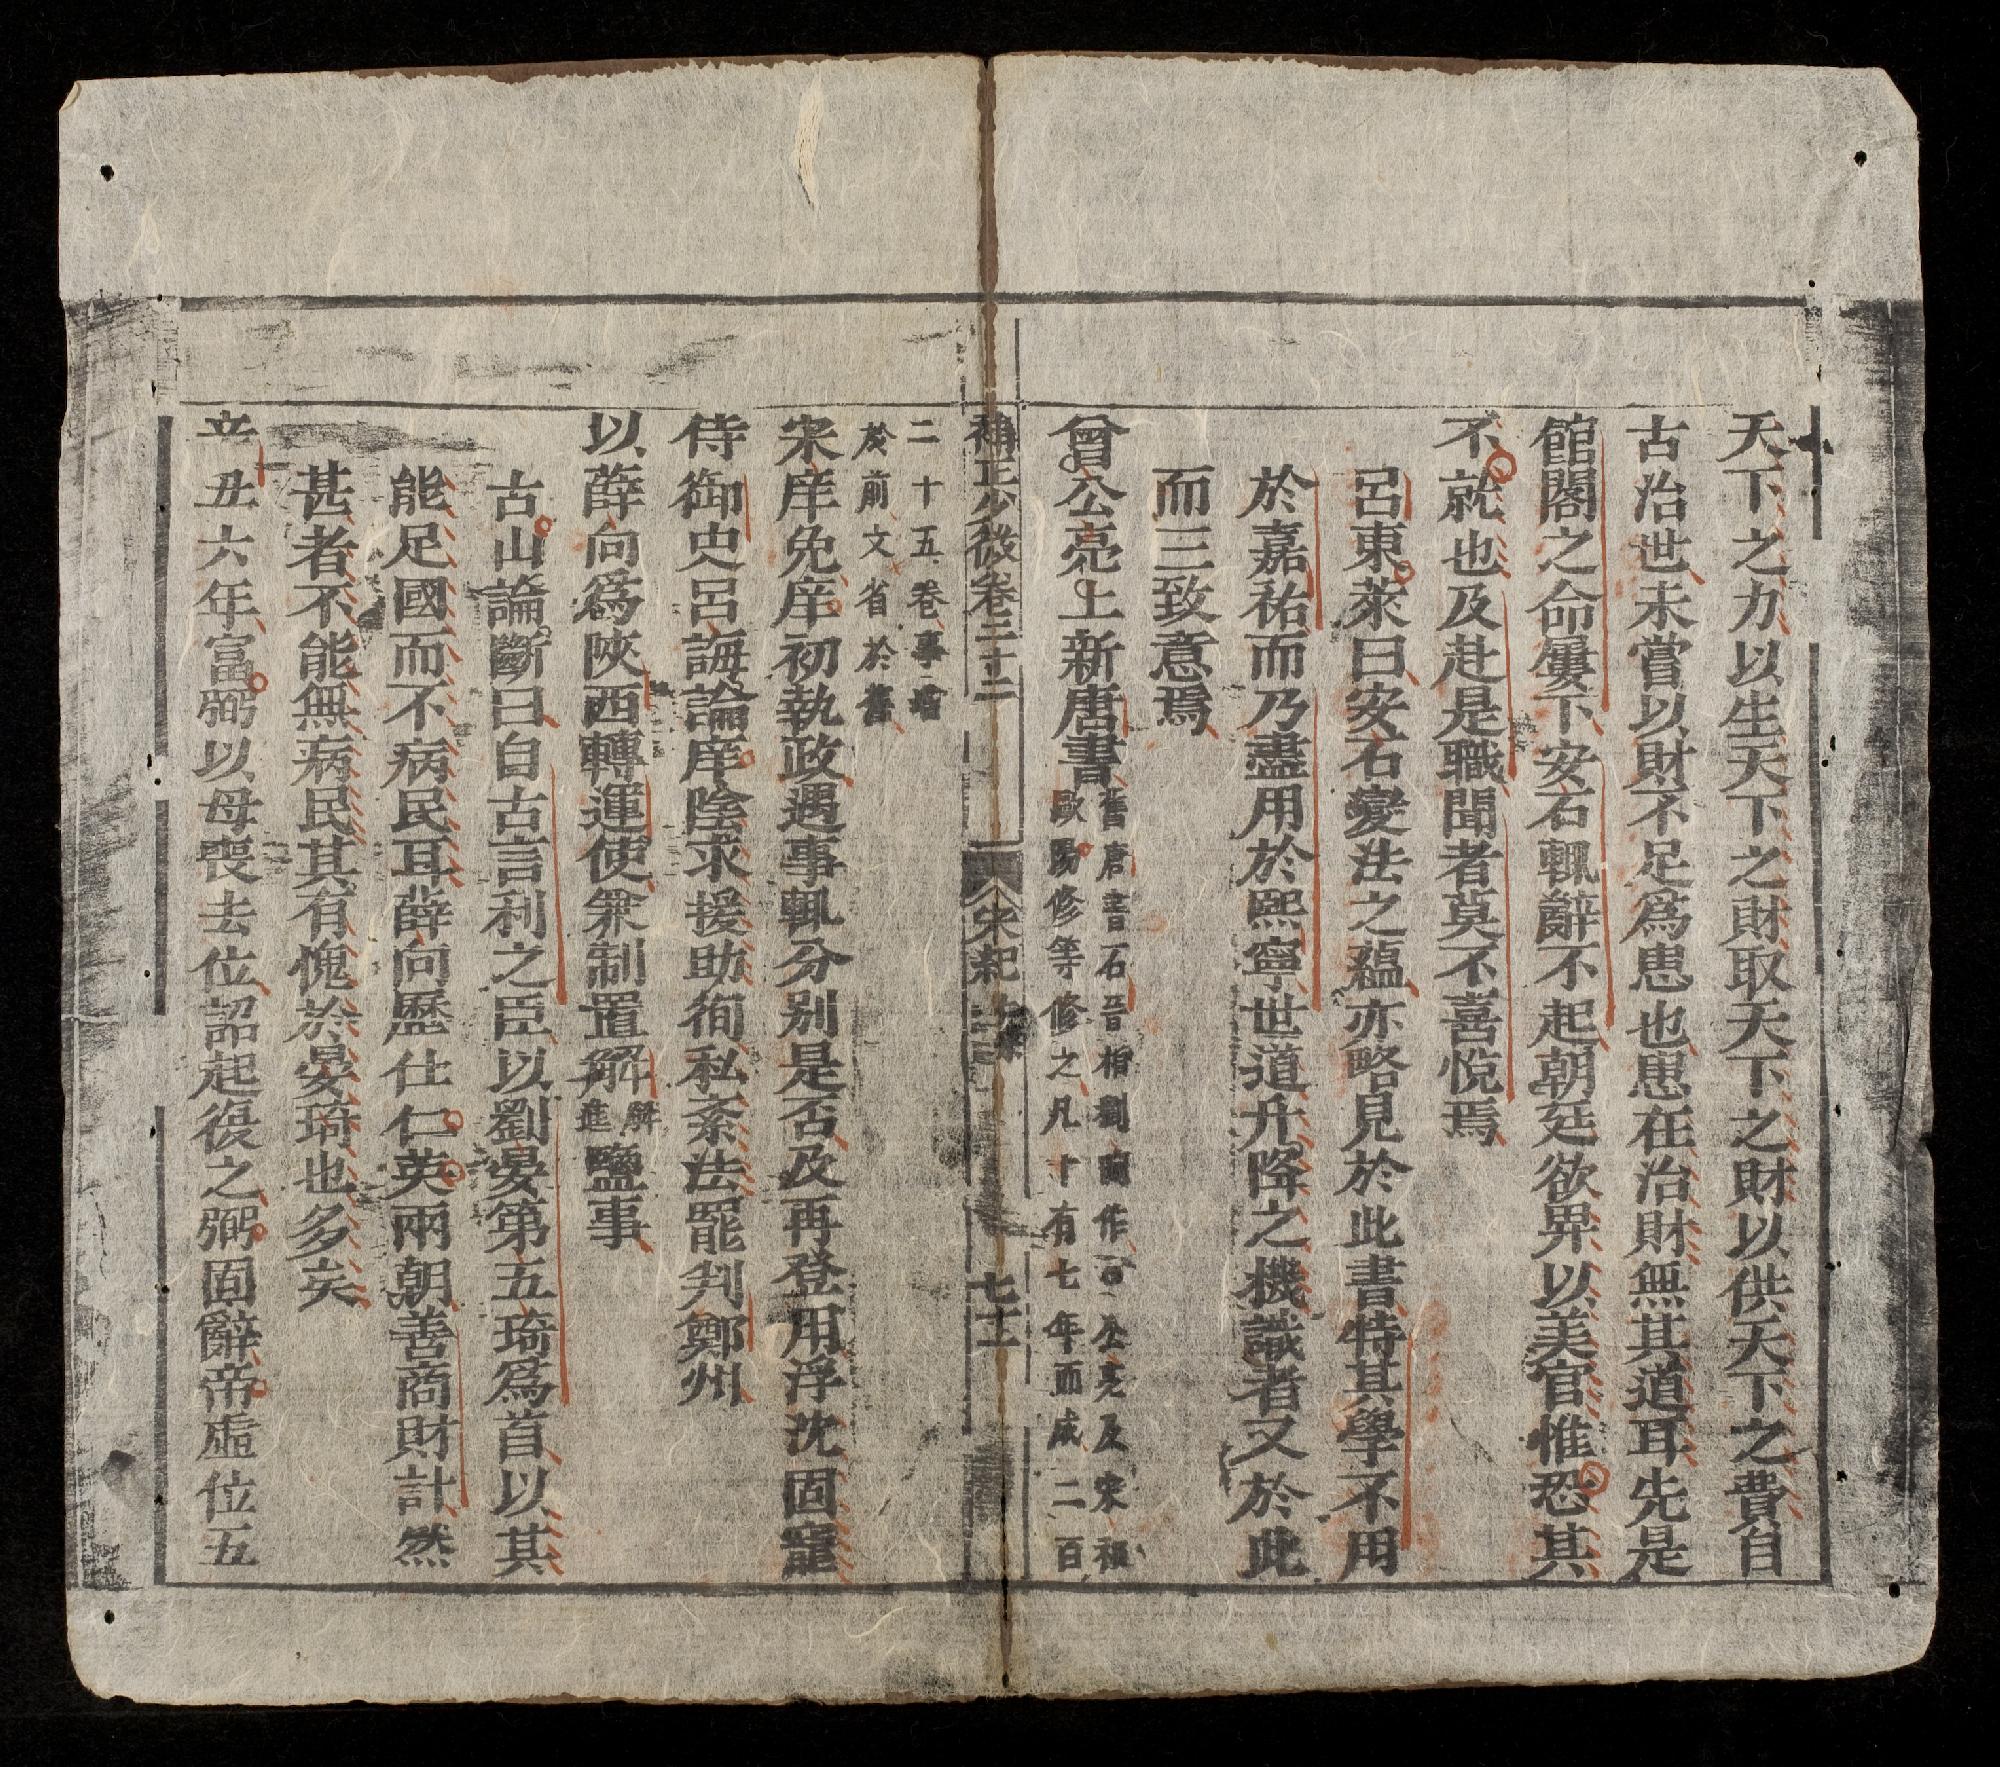 天下之力以生天下之財取天下之財以供天下之費自
古治世未嘗以財不足爲患也患在治財無其道耳先是
館閣之命屢下安石輒辭不起朝廷欲畀以美官惟恐其
不就也及赴是職聞者莫不喜悅焉
呂東萊曰安石變法之蘊亦略見於此書特其學不用
於嘉祐而乃盡用於熙寧世道升降之機識者又於此
而三致意焉
曾公亮上新唐書
舊唐書石晉相劉昫作公亮及宋祁
歐陽修等修之凡十有七年而成二百
補正少微卷二十二
宋紀
七十二
二十五卷事增
於前文省於舊
宋庠免庠初執政遇事輒分别是否及再登用浮沈固寵
侍御史呂誨論庠陰求援助徇私紊法罷判鄭州
以薛向爲陜西轉運使兼制置解
解
進
鹽事
古山論斷曰自古言利之臣以劉晏第五琦爲首以其
能足國而不病民耳薛向歷仕仁英兩朝善商財計然
甚者不能無病民其有愧於晏琦也多矣
辛丑六年富弼以母喪去位詔起復之弼固辭帝虛位五